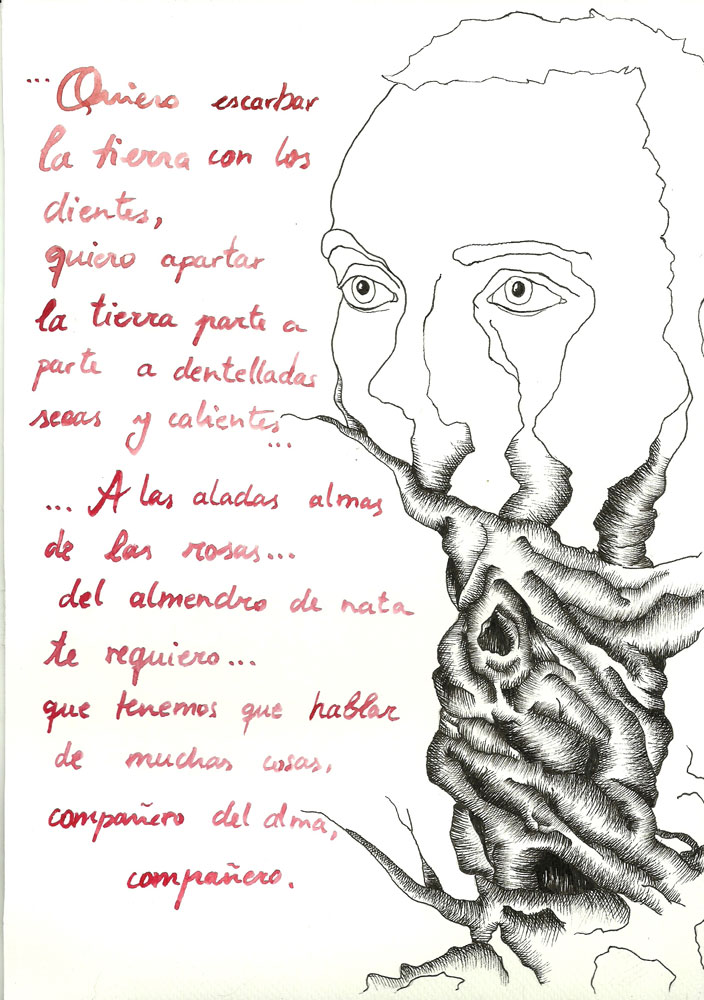 ... Quiero escarbar
la tierra con los
dientes,
quiero apartar
la tierra parte a
parte a dentelladas
secas y calientes
...
... A las aladas almas
de las rosas...
del almendro de nata
te requiero...
que tenemos que hablar
de muchas cosas,
compañero del alma,
compañero.